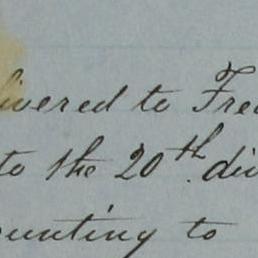 livered to Fre
to the 20th. div
ounting to